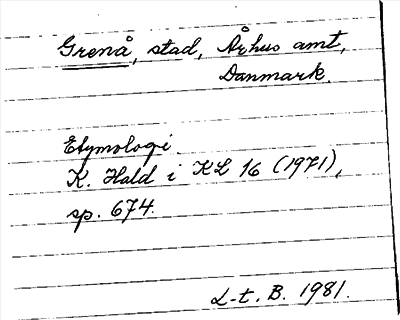 Grenå, stad, Århus amt,
Danmark.
Etymologi
K. Hald i KL 16 (1971),
sp. 674.
L-t. B. 1981.